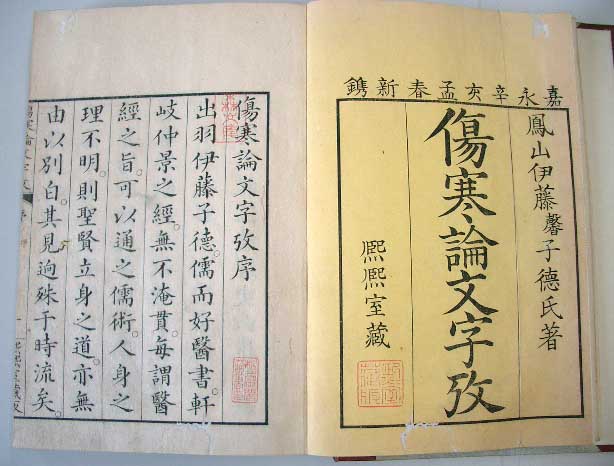 嘉永辛亥孟春新鐫
鳳山伊藤馨子德氏著
傷寒論文字攷
熙熙室藏
傷寒論文字攷序
出羽伊藤子德。儒而好醫書。軒
岐仲景之經。無不淹貫。每謂醫
經之旨。可以通之儒術。人身之
理不明。則聖賢立身之道。亦無
由以別白。其見逈殊于時流矣。
傷寒論文字攷
序
一
熙熙室藏板